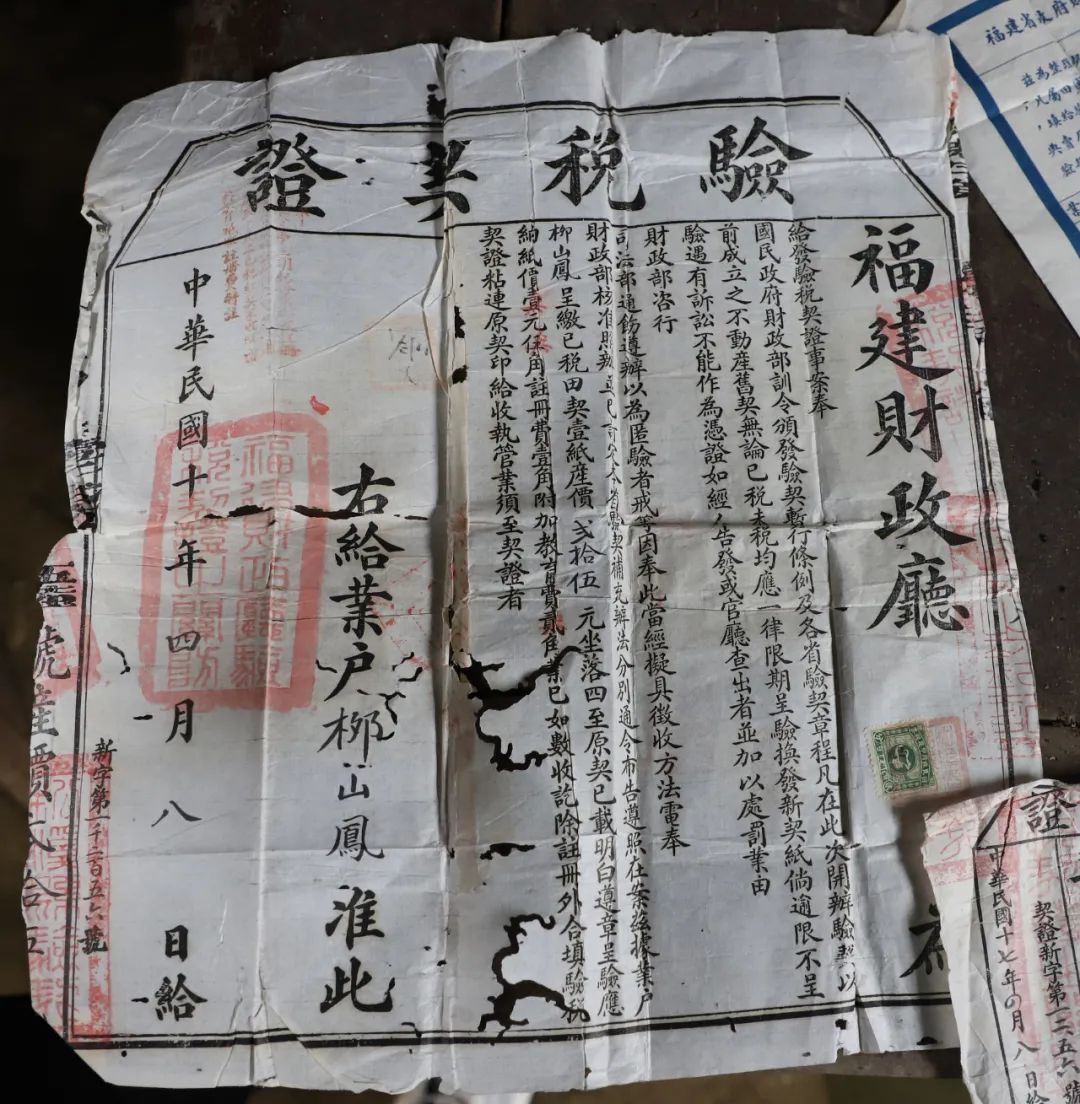 驗税契證
福建財政廳
給發驗税契證事案奉
國民政府財政部訓令頒發驗契暫行條例及各省驗契章程凡在此次開辦驗契以
前成立之不動產舊契無論已税未税均應一律限期呈驗換發新契紙倘逾限不呈
驗遇有訴訟不能作為憑證如經人告發或官廳查出者並加以處罰業由
財政部咨行
司法部通飭遵辦以為匿驗者戒等因奉此當經擬具徵收方法電奉
財政部核准
省驗契補充辦法分別通令布告遵照在案茲據業户
柳山鳳呈繳已税田契壹紙產價弍拾伍元坐落四至原契已載明白遵章呈驗應
納紙價壹元伍角註冊費壹角附加教育費貳角業已如數收訖除註冊外合填驗税
契證粘連原契印給收執管業須至契證者
右給業户柳山鳳准此
中華民國十年四月八日給
新字第一千二百五六號
號產價弍合五
福建省政府
證
中華民國十七年四月八日給
契證新字第一二五六號